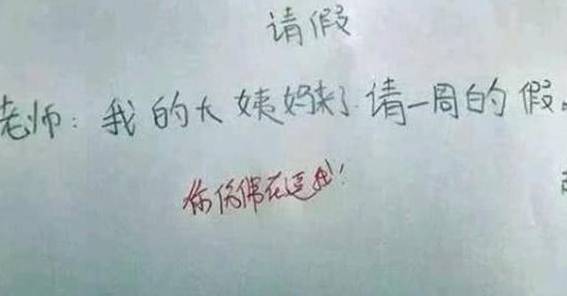 请假
老师：我的大姨妈来了请一周的假。
你仿佛在逗我！